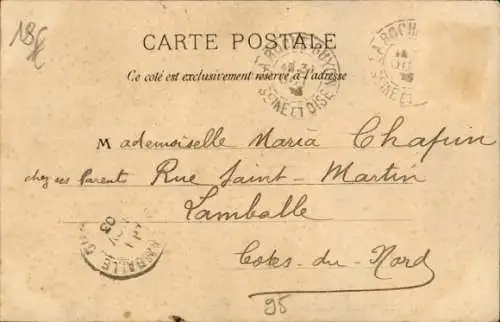 CARTE POSTALE
Ce côté est exclusivement réservé à l'adresse
LA ROCHE-GUYON
SEINE ET OISE
LA ROCHE
SEINE ET
Mademoiselle Maria Chapin
chez ses Parents Rue Saint-Martin
Lamballe
Cotes-du-Nord
LAMBALLE
03
95